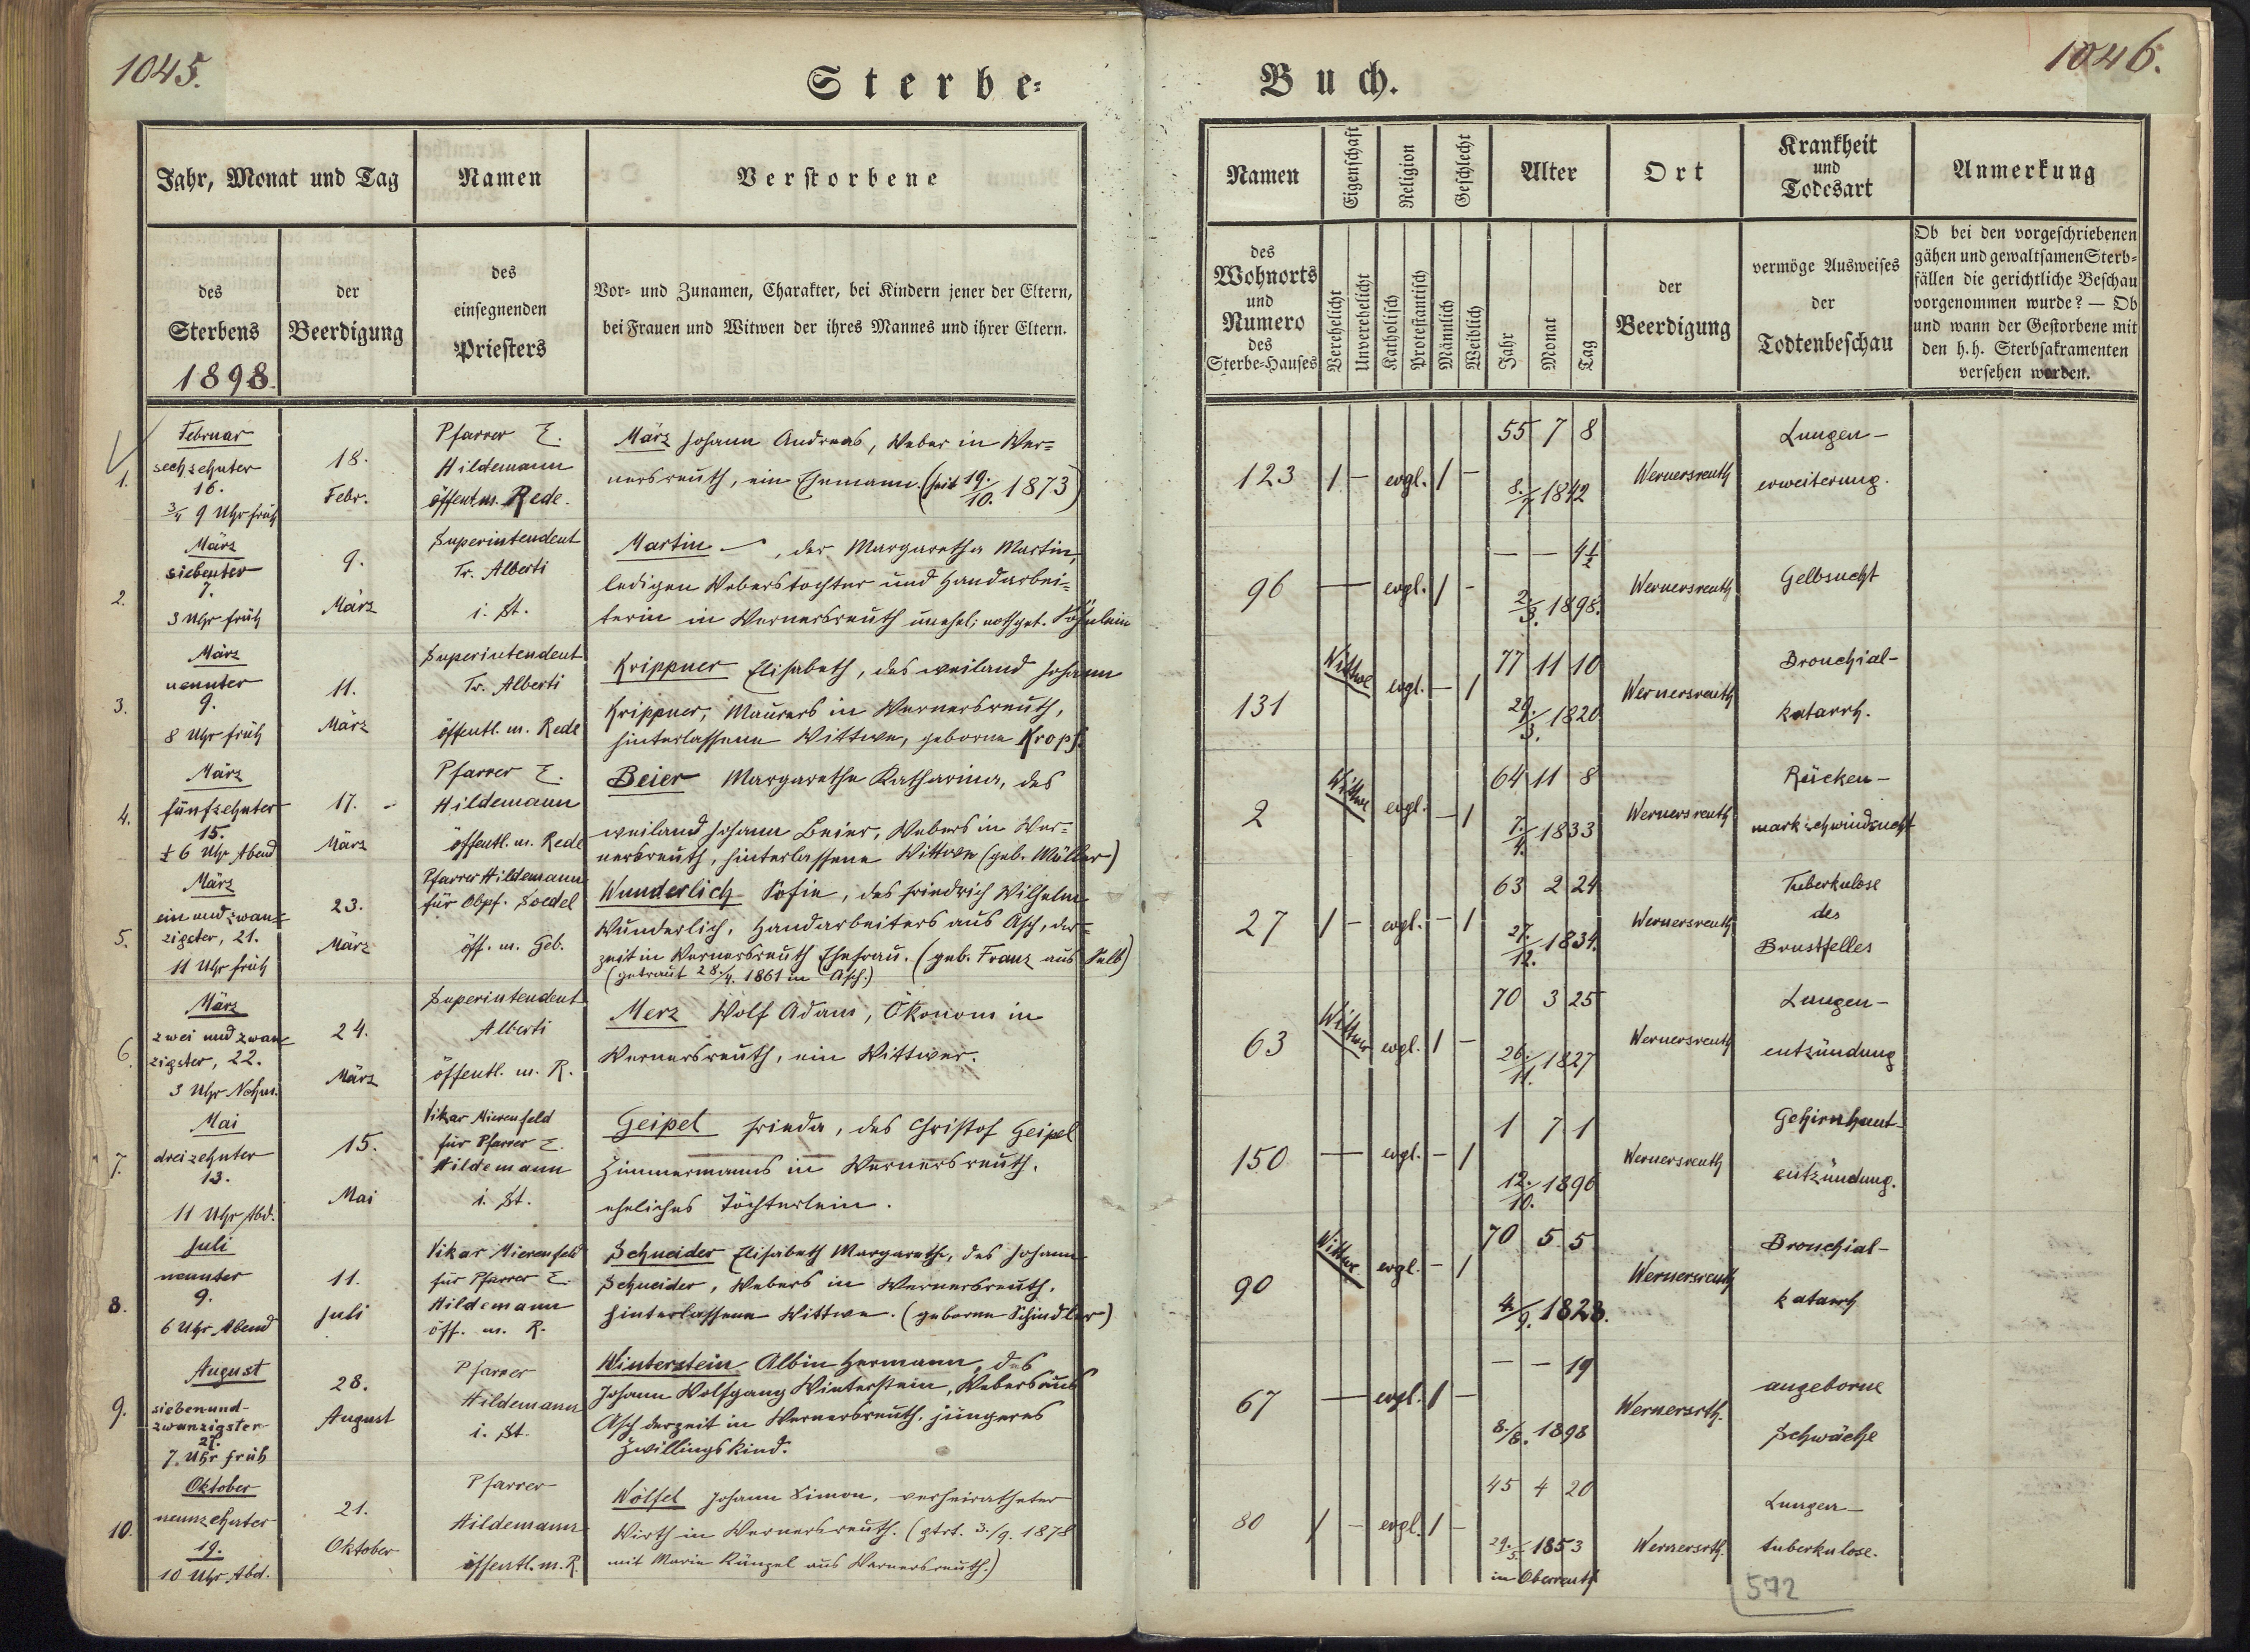 1045.
Sterbe-
Jahr, Monat und Tag
Namen
Verstorbene
des
Sterbens
1898.
der
Beerdigung
des
einsegnenden
Priesters
Vor- und Zunamen, Charakter, bei Kindern jener der Eltern,
bei Frauen und Witwen der ihres Mannes und ihrer Eltern.
1.
Februar
sechzehnter
16.
3/4 9 Uhr früh
18.
Febr.
Pfarrer E.
Hildemann
öffentl. m. Rede.
März Johann Andreas, Weber in Wer=
nersreuth, ein Ehemann. (seit 19./10. 1873)
2.
März
siebenter
7.
3 Uhr früh
9.
März
Superintendent
Tr. Alberti
i. St.
Martin —, der Margaretha Martin,
ledigen Weberstochter und Handarbei=
terin in Wernersreuth unehel. nothget. Söhnlein
3.
März
neunter
9.
8 Uhr früh
11.
März
Superintendent
Tr. Alberti
öffentl. m. Rede
Krippner Elisabeth, des weiland Johann
Krippner, Maurers in Wernersreuth,
hinterlassene Wittwe, geborne Kropf.
4.
März
fünfzehnter
15.
1/2 6 Uhr Abend
17.
März
Pfarrer E.
Hildemann
öffentl. m. Rede
Beier Margarethe Katharina, des
weiland Johann Beier, Webers in Wer=
nersreuth, hinterlassene Wittwe (geb. Müller)
5.
März
ein und zwan=
zigster, 21.
11 Uhr früh
23.
März
Pfarrer Hildemann
für Obpf. Soedel
öff. m. Geb.
Wunderlich Sofie, des Friedrich Wilhelm
Wunderlich, Handarbeiters aus Asch, der=
zeit in Wernersreuth Ehefrau. (geb. Franz aus Selb)
(getraut 28./4. 1861 in Asch.)
6.
März
zwei und zwan=
zigster, 22.
3 Uhr Nchm.
24.
März
Superintendent
Alberti
öffentl. m. R.
Merz Wolf Adam, Ökonom in
Wernersreuth, ein Wittwer.
7.
Mai
dreizehnter
13.
11 Uhr Abd.
15.
Mai
Vikar Mierenfeld
für Pfarrer E.
Hildemann
i. St.
Geipel Frieda, des Christof Geipel
Zimmermanns in Wernersreuth,
eheliches Töchterlein.
8.
Juli
neunter
9.
6 Uhr Abend
11.
Juli
Vikar Mierenfeld
für Pfarrer E.
Hildemann
öff. m. R.
Schneider Elisabeth Margareth, des Johann
Schneider, Webers in Wernersreuth,
hinterlassene Wittwe. (geborne Schindler)
9.
August
siebenund-
zwanzigster
27.
7 Uhr früh
28.
August
Pfarrer
Hildemann
i. St.
Winterstein Albin Hermann, des
Johann Wolfgang Winterstein, Webers aus
Asch derzeit in Wernersreuth, jüngeres
Zwillingskind.
10.
Oktober
neunzehnter
19.
10 Uhr Abd.
21.
Oktober
Pfarrer
Hildemann
öffentl. m. R.
Wölfel Johann Simon, verheiratheter
Wirth in Wernersreuth. (gtrt. 3./9. 1878
mit Maria Künzel aus Wernersreuth.)
1046.
Buch.
Namen
Eigenschaft
Religion
Geschlecht
Alter
Ort
Krankheit
und
Todesart
Anmerkung
des
Wohnorts
und
Numero
des
Sterbe-Hauses
Verehelicht
Unverehelicht
Katholisch
Protestantisch
Männlich
Weiblich
Jahr
Monat
Tag
der
Beerdigung
vermöge Ausweises
der
Todtenbeschau
Ob bei den vorgeschriebenen
gähen und gewaltsamen Sterb-
fällen die gerichtliche Beschau
vorgenommen wurde? — Ob
und wann der Gestorbene mit
den h. h. Sterbsakramenten
versehen worden.
123 1 — evgl. 1 —
55 7 8
8./7. 1842
Wernersreuth
Lungen-
erweiterung.
96 — evgl. 1 -
— — 4 1/2
2./3. 1898.
Wernersreuth
Gelbsucht
131 Wittwe evgl. — 1
77 11 10
29./3. 1820
Wernersreuth
Bronchial-
katarrh.
2 Wittwe evgl. — 1
64 11 8
7./4. 1833
Wernersreuth
Rücken-
markschwindsucht
27 1 - evgl. — 1
63 2 24
27./12. 1834.
Wernersreuth
Tuberkulose
des
Brustfelles
63 Wittwer evgl. 1 —
70 3 25
26./11. 1827
Wernersreuth
Lungen-
entzündung
150 — evgl. — 1
1 7 1
12./10. 1896
Wernersreuth
Gehirnhaut-
entzündung.
90 Wittwe evgl. — 1
70 5 5
4./9. 1828.
Wernersreuth
Bronchial-
katarrh
67 — evgl. 1 —
— — 19
8./8. 1898
Wernersrth.
angeborne
Schwäche
80 1 — evgl. 1 —
45 4 20
29./5. 1853
in Oberreuth
Wernersrth.
Lungen-
tuberkulose.
572